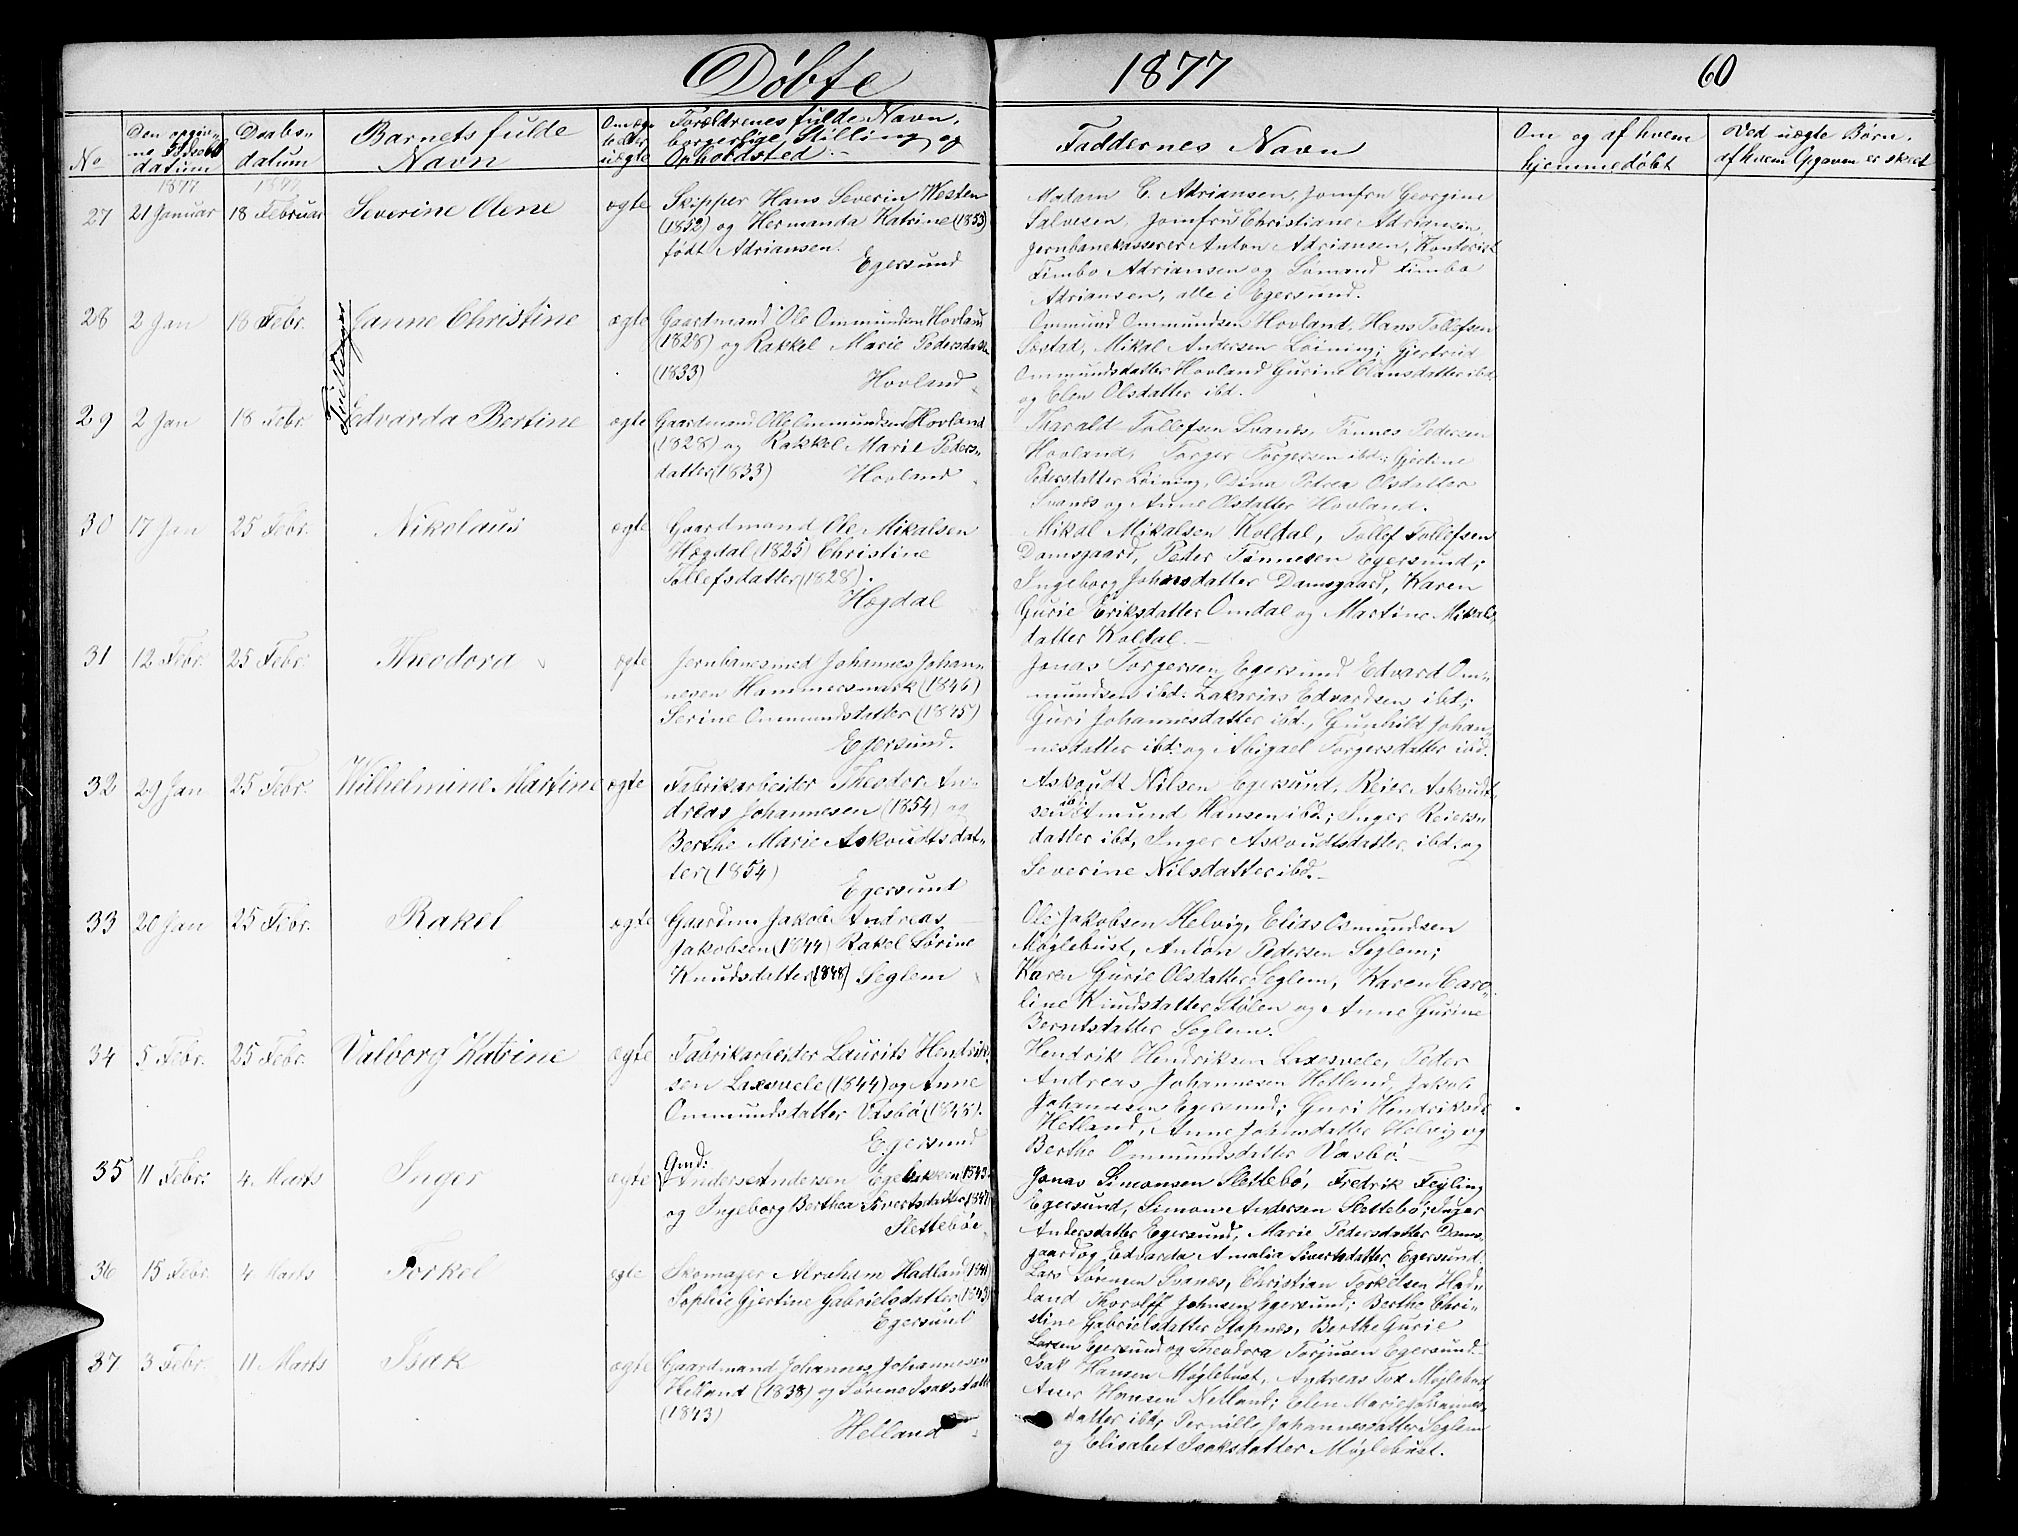 Døbte 1877 60
No
Den opgiv-
ne Fødsels
datum
Daabs-
datum
Barnets fulde
Navn
Om ægte
eller
uægte
Forældrenes fulde Navn,
borgerlige Stilling og
Opholdsted.
Faddernes Navn
Om og af hvem
hjemmedøbt
Ved uægte Børn,
af hvem Opgaven er skeet
1877 1877
27 21 Januar 18 Februar Severine Aene ægte
Skipper Hans Severin Westen
(1852) og Hermanda Katrine (1853)
født Adriansen.
Egersund
Madam C. Adriansen, Jomfru Georgine
Salvesen, Jomfru Christiane Adriansen,
Jernbanekasserer Anton Adriansen, Kontorist
Timbo Adriansen og Sømand Timbo
Adriansen, alle i Egersund.
Tvillinger
28 2 Jan 18 Febr. Janne Christine ægte
Gaardmand Ole Ommundsen Hovland
(1828) og Rakkel Marie Pedersdatter
(1833)
Hovland
Ommund Ommundsen Hovland, Hans Tollefsen
Sæstad, Mikal Andersen Løining; Gjertrud
Ommundsdatter Hovland Gurine Clausdatter ibd.
og Elen Olsdatter ibd.
29 2 Jan 18 Febr. Edvarda Bertine ægte
Gaardmand Olle Ommundsen Hovland
(1828) og Rakkel Marie Peders-
datter (1833)
Hovland
Tharald Tollefsen Svanes, Tønnes Pedersen
Hovland, Torger Torgersen ibd.; Gjertine
Pedersdatter Løining, Dina Petrea Olsdatter
Svanes og Anne Olsdatter Hovland.
30 17 Jan 25 Febr. Nikolaus ægte
Gaardmand Ole Mikalsen
Høgdal (1825) Christine
Tollefsdatter (1828).
Høgdal
Mikal Mikalsen Koldal, Tollef Tollefsen
Damsgaard, Peter Tønnesen Egersund;
Ingeborg Johansdatter Damsgaard, Karen
Gurie Eriksdatter Omdal og Martine Mikals
datter Koldal.
31 12 Febr. 25 Febr. Theodora ægte
Jernbanesmed Johannes Johan-
nesen Hammersmark (1846)
Serine Ommundsdatter (1845)
Egersund.
Jonas Torgersen Egersund Edvard Om-
mundsen ibd. Zakarias Edvardsen ibd;
Guri Johannesdatter ibd., Gunhild Johan-
nesdatter ibd. og Abigael Torgersdatter ibd.
32 29 Jan 25 Febr. Wilhelmine Martine ægte
Fabrikarbeider Theodor An-
dreas Johannesen (1854) og
Berthe Marie Askoudtsdat-
ter (1854)
Egersund
Askoudt Nilsen Egersund, Reier Askoudt-
sen ibd Osmund Hansen ibd; Inger Reiers-
datter ibd, Inger Askoudtsdatter ibd. og
Severine Nilsdatter ibd.
33 20 Jan 25 Febr. Rakel ægte
Gaardm. Jakob Andreas
Jakobsen (1844) Rakel Sørine
Knudsdatter (1848) Seglem
Ole Jakobsen Helvig, Elias Osmundsen
Møglebust, Anton Pedersen Seglem;
Karen Gurie Olsdatter Seglem, Karen Caro-
line Knudsdatter Stølen og Anne Gurine
Berntsdatter Seglem.
34 5 Febr. 25 Febr. Valborg Katrine ægte
Fabrikarbeider Laurits Hendrik-
sen Laxesvele (1844) og Anne
Ommundsdatter Vasbø (1848).
Egersund
Hendrik Hendriksen Laxesvele, Peder
Andreas Johannesen Hetland, Jakob
Johannesen Egersund; Guri Hendriksd.
Hetland, Anne Johnsdatter Helvig og
Berthe Ommundsdatter Vasbø.
35 11 Febr: 4 Marts Inger ægte
Gmd:
Anders Andersen Egebakken 1843
og Ingeborg Berthea Sivertsdatter 1847
Slettebøe
Jonas Simonsen Slettebø, Fredrik Feyling
Egersund, Simon Andersen Slettebø; Inger
Andersdatter Egersund, Marie Pedersdatter Dams-
gaard og Edvarda Amalia Sivertsdatter Egersund.
36 15 Febr. 4 Marts Torkel ægte
Skomager Abraham Hadland (1841)
Sophie Gjertine Gabrielsdatter (1843)
Egersund
Lars Sørensen Svanes, Christian Torkelsen Had-
land Thorolff Johnsen Egersund; Berthe Chri-
stine Gabrielsdatter Stapnes, Berthe Gurie
Larsen Egersund og Theodora Torjusen Egersund.
37 3 Febr. 11 Marts Isak ægte
Gaardmand Johannes Johannesen
Helland (1838) og Sørine Isaksdatter
(1843)
Helland
Isak Hansen Møglebust, Andreas Tox Møglebust,
Aner Hansen Netland; Elen Marie Johannes-
datter ibd; Pernille Johannesdatter Seglem
og Elisabet Isaksdatter Møglebust.